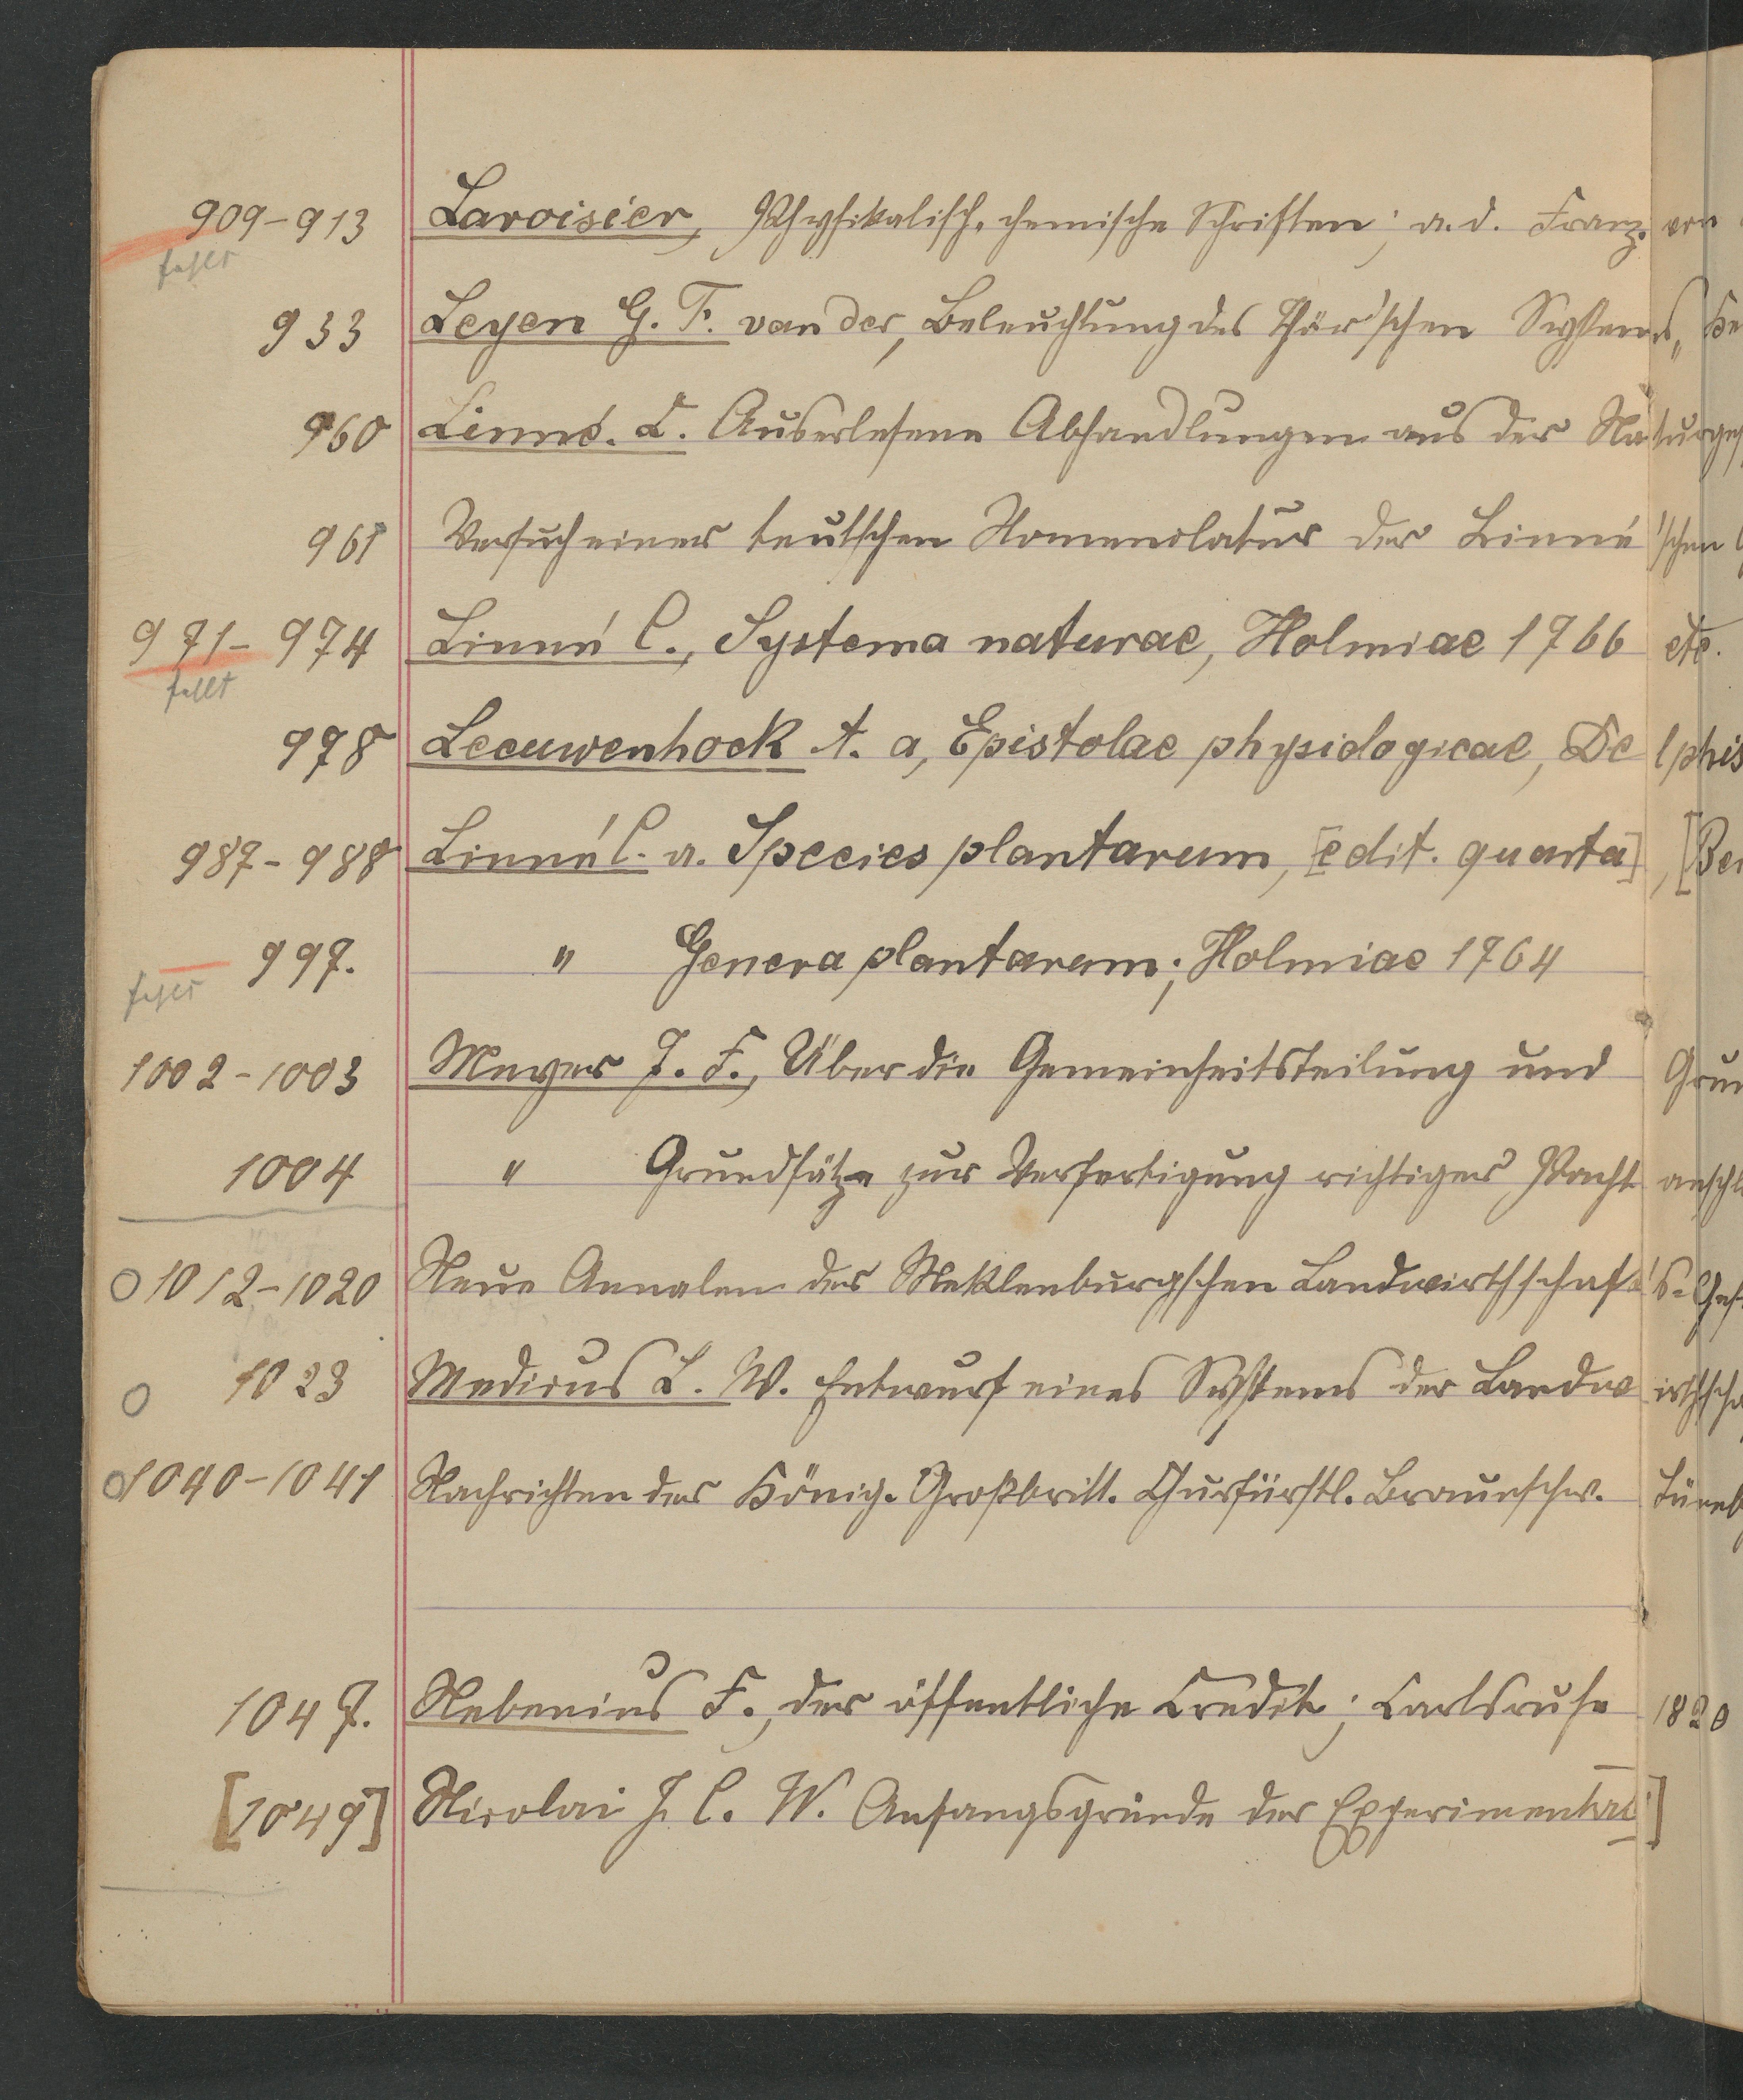 909-913 Lavoisier, Physikalisch-chemische Schriften; a. d. Franz. von
fehlt
933 Leyen G. F. van der, Beleuchtung des Thär'schen Systems, Be
960 Linné. C. Auserlesene Abhandlungen aus der Naturges
961 Versuch einer teutschen Nomenclatur der Linné'schen G
971-974 Linné C., Systema naturae, Holmiae 1766 etc.
fehlt
978 Leeuwenhoek A. a, Epistolae physiologicae, Delphis
987-988 Linné C. a. Species plantarum, [edit. quarta], [Ber
997. " Genera plantarum; Holmiae 1764
fehlt
1002-1003 Meyer J. F., Über die Gemeinheitsteilung und Grun
1004 " Grundsätze zur Verfertigung richtiger Pachtanschl
1012-1020 Neue Annalen der Meklenburgschen Landwirthschafts-Ges
1023 Medicus L. W. Entwurf eines Systems der Landwirthscha
1040-1041 Nachrichten der König. Großbritt. Churfürstl. Braunschw. Lüneb
1047. Nebenius F., der öffentliche Credit; Carlsruhe 1820
[1049] Nicolai J. C. W. Anfangsgründe der Experimental]